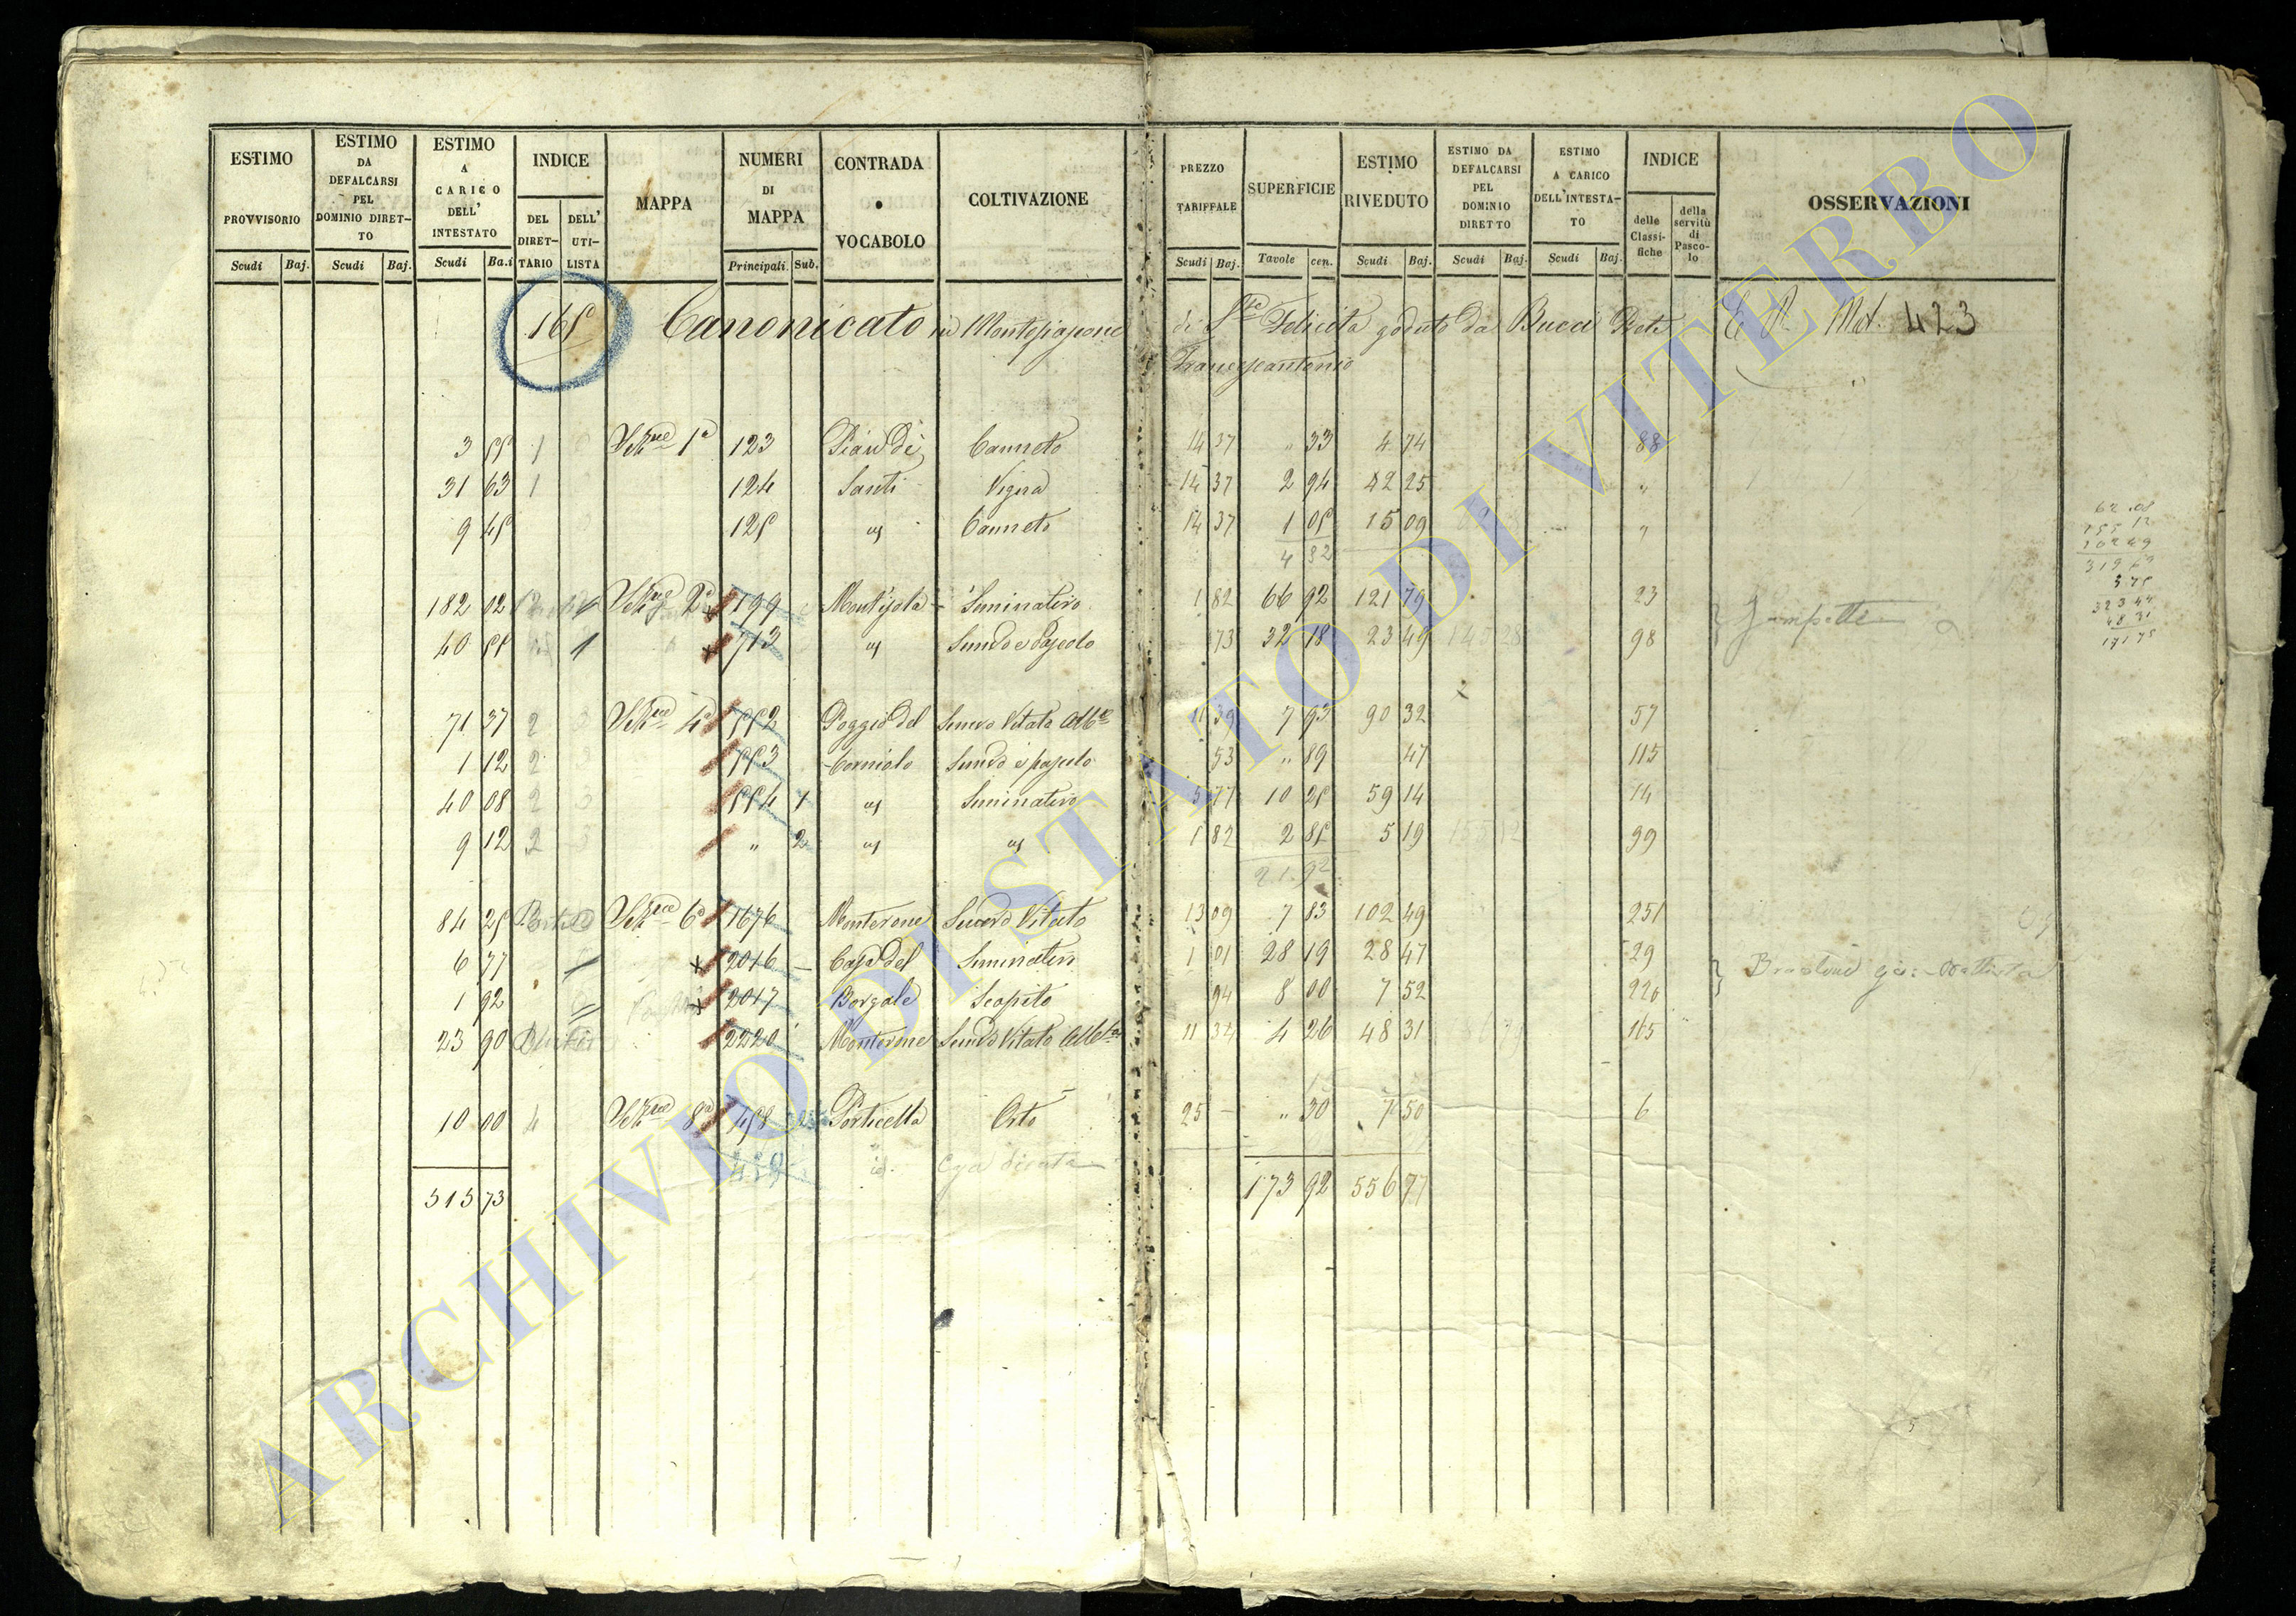 ESTIMO PROVVISORIO Scudi Baj.
ESTIMO DA DEFALCARSI PEL DOMINIO DIRET-TO Scudi Baj.
ESTIMO A CARICO DELL' INTESTATO Scudi Ba.i
INDICE DEL DIRET-TARIO DELL' UTI-LISTA
MAPPA
NUMERI DI MAPPA Principali. Sub.
CONTRADA o VOCABOLO
COLTIVAZIONE
PREZZO TARIFFALE Scudi Baj.
SUPERFICIE Tavole cen.
ESTIMO RIVEDUTO Scudi Baj.
ESTIMO DA DEFALCARSI PEL DOMINIO DIRETTO Scudi Baj.
ESTIMO A CARICO DELL'INTESTA-TO Scudi Baj.
INDICE delle Classi-fiche della servitù di Pasco-lo
OSSERVAZIONI
165 Canonicato in Montefiascone di Sta Felicita goduto da Bucci Prete Mat. 423
Francescantonio
3 55 1 1a 123 Pian de Canneto 14 37 " 33 4 74 88
31 63 1 124 Santi Vigna 14 37 2 94 42 25 "
9 45 125 id Canneto 14 37 1 05 15 09 "
4 82
182 02 2a 199 Seminativo 1 82 66 92 121 79 23
40 55 1 713 id Sodo e Pascolo 73 32 18 23 49 98
71 37 2 4a 552 Poggio del Semvo Vitato Albto 11 39 7 93 90 32 57
1 12 2 553 Corniolo Sodo e pascolo 53 " 89 47 115
40 08 2 3 554 1 id Seminativo 5 77 10 25 59 14 14
9 12 2 3 " 2 id id 1 82 2 85 5 19 155 12 99
21.92
84 25 6a 1676 Monterone Semvo Vitato 13 09 7 83 102 49 251
6 77 2016 Casa del Seminativo 1 01 28 19 28 47 29
1 92 2017 Borgale Scopeto 94 8 00 7 52 226
23 90 2220 Monterone Semvo Vitato Albto 11 34 4 26 48 31 165
10 00 4 8a 458 Porticella Orto 25 – " 30 7 50 6
459 id. Casa diruta
515 73 173 92 556 77
ARCHIVIO DI STATO DI VITERBO